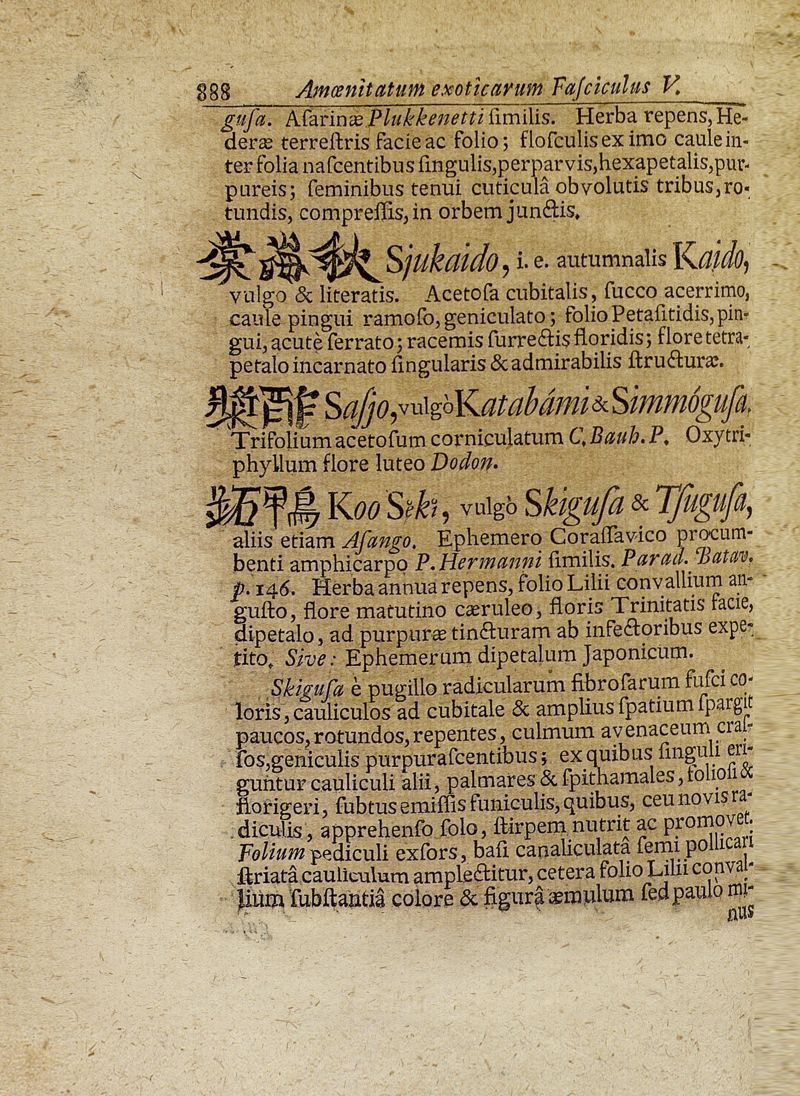 888 Amœnitatum exoticarum Faſciculus V.
guſa. Aſarinæ Plukkenetti ſimilis. Herba repens, He-
deræ terreſtris facie ac folio; floſculis ex imo caule in-
ter folia naſcentibus ſingulis, perparvis, hexapetalis, pur-
pureis; ſeminibus tenui cuticulâ obvolutis tribus, ro-
tundis, compreſſis, in orbem junctis.
棠海秋 Sjukaido, i. e. autumnalis Kaido,
vulgo & literatis. Acetoſa cubitalis, ſucco acerrimo,
caule pingui ramoſo, geniculato; folio Petaſitidis, pin-
gui, acutè ſerrato; racemis ſurrectis floridis; flore tetra-
petalo incarnato ſingularis & admirabilis ſtructuræ.
Saſjo, vulgò Katabámi & Simmóguſa.
Trifolium acetoſum corniculatum C. Bauh. P. Oxytri-
phyllum flore luteo Dodon.
Koo Seki, vulgò Skiguſa & Tſuguſa,
aliis etiam Aſango. Ephemero Coraſſavico procum-
benti amphicarpo P. Hermanni ſimilis. Parad. Batav.
p. 146. Herba annua repens, folio Lilii convallium an-
guſto, flore matutino cæruleo, floris Trinitatis facie,
dipetalo, ad purpuræ tincturam ab infectoribus expe-
tito. Sive: Ephemerum dipetalum Japonicum.
Skiguſa è pugillo radicularum fibroſarum fuſci co-
loris, cauliculos ad cubitale & amplius ſpatium ſpargit
paucos, rotundos, repentes, culmum avenaceum craſ-
ſos, geniculis purpuraſcentibus; ex quibus ſinguli eri-
guntur cauliculi alii, palmares & ſpithamales, folioſi &
florigeri, ſubtus emiſſis funiculis, quibus, ceu novis ra-
diculis, apprehenſo ſolo, ſtirpem nutrit ac promovet.
Folium pediculi exſors, baſi canaliculatâ ſemi pollicari
ſtriatâ cauliculum amplectitur, cetera folio Lilii conval-
lium ſubſtantiâ colore & figurâ æmulum ſed paulo mi-
nus